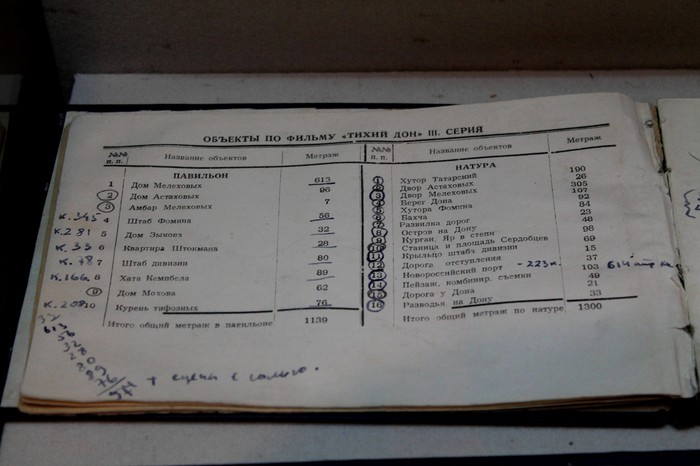 ОБЪЕКТЫ ПО ФИЛЬМУ «ТИХИЙ ДОН» III. СЕРИЯ
№№ п. п. Название объектов Метраж
ПАВИЛЬОН
1 Дом Мелеховых 613
2 Дом Астаховых 96
3 Амбар Мелеховых 7
к. 345 4 Штаб Фомина 56
к. 281 5 Дом 32
к. 33 6 Квартира Штокмана 28
к. 78 7 Штаб дивизии 80
к. 166 8 Хата Кемпбела 89
9 Дом Мохова 62
к. 208 10 Курень тифозных 76
Итого общий метраж в павильоне 1139
+ сцены с
№№ п. п. Название объектов Метраж
НАТУРА
1 Хутор Татарский 190
2 Двор Астаховых 26
3 Двор Мелеховых 305
4 Берег Дона 107
5 Хутора Фомина 92
6 Бахча 84
7 Развилка дорог 23
8 Остров на Дону 48
9 Курган, Яр в степи 98
10 Станица и площадь Сердобцев 69
11 Крыльцо штаба дивизии 15
12 Дорога отступления 37
13 Новороссийский порт - 223к. 103 614
14 Пейзаж. комбинир. съемки 49
15 Дорога у Дона 21
16 Разводья на Дону 33
Итого общий метраж по натуре 1300